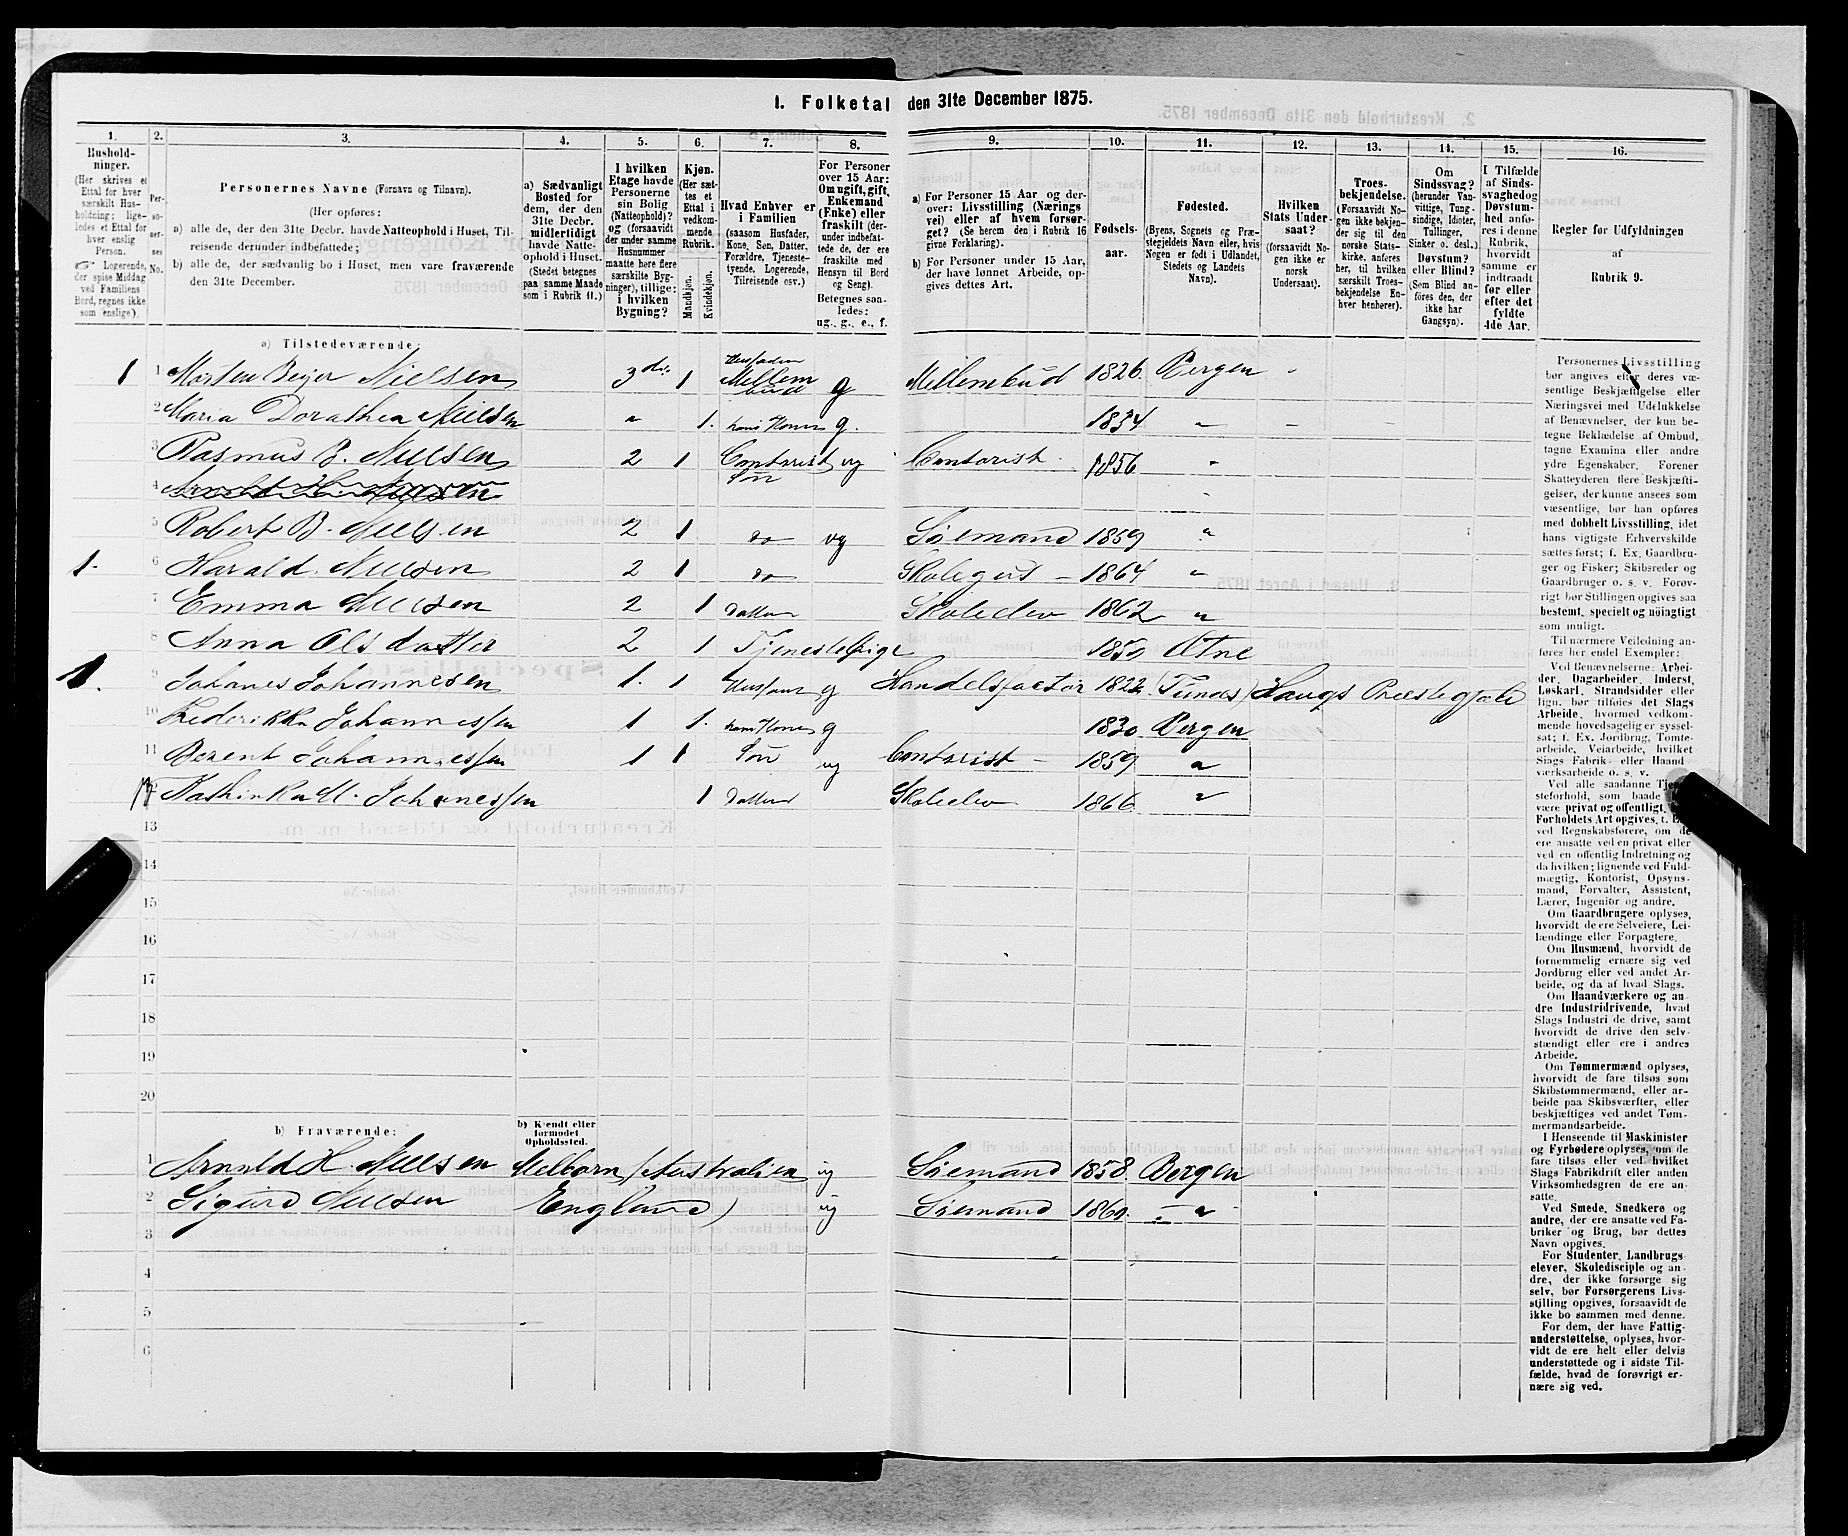 1. Folketal den 31te December 1875.
1. 2. 3. 4. 5. 6. 7. 8. 9. 10. 11. 12. 13. 14. 15. 16.
Husholdninger.
(Her skrives et
Ettal for hver
særskilt Husholdning; ligeledes et Ettal for
hver enslig
Person.
Logerende,
der spise Middag
ved Familiens
Bord, regnes ikke
som enslige).
Personernes No.
Personernes Navne (Fornavn og Tilnavn).
(Her opføres:
a) alle de, der den 31te Decbr. havde Natteophold i Huset, Tilreisende derunder indbefattede;
b) alle de, der sædvanlig bo i Huset, men vare fraværende
den 31te December.
a) Sædvanligt
Bosted for
dem, der den
31te Decbr.
midlertidigt
havde Natteophold i Huset.
(Stedet betegnes
paa samme Maade
som i Rubrik 11.)
I hvilken
Etage havde
Personerne
sin Bolig
(Natteophold)?
og (forsaavidt
der under samme
Husnummer
maatte høre flere
særskilte Bygninger), tillige:
i hvilken
Bygning?
Kjøn.
(Her sættes et
Ettal i
vedkommende
Rubrik.
Mandkjøn.
Kvindekjøn.
Hvad Enhver er
i Familien
(saasom Husfader,
Kone, Søn, Datter,
Forældre, Tjenestetyende, Logerende,
Tilreisende osv.)
For Personer
over 15 Aar:
Om ugift, gift,
Enkemand
(Enke) eller
fraskilt (derunder indbefattede de, der ere
fraskilte med
Hensyn til Bord
og Seng).
Betegnes saaledes:
ug., g., e., f.
a) For Personer 15 Aar og derover: Livsstilling (Næringsvei) eller af hvem forsørget? (Se herom den i Rubrik 16
givne Forklaring).
b) For Personer under 15 Aar,
der have lønnet Arbeide, opgives dettes Art.
Fødselsaar.
Fødested.
(Byens, Sognets og Præstegjeldets Navn eller, hvis
Nogen er født i Udlandet,
Stedets og Landets
Navn).
Hvilken
Stats Undersaat?
(forsaavidt Nogen ikke er
norsk
Undersaat).
Troesbekjendelse.
(Forsaavidt Nogen ikke bekjender sig til den
norske Statskirke, anføres
her, til hvilken
særskilt Troesbekjendelse Enhver henhører).
Om
Sindssvag?
(herunder Vanvittige, Tungsindige, Idioter,
Tullinger,
Sinker o. desl.)
Døvstum?
eller Blind?
(Som Blind anføres den, der
ikke har
Gangsyn).
I Tilfælde
af Sindssvaghed og
Døvstumhed anføres i denne
Rubrik,
hvorvidt
samme er
indtraadt
før eller
efter det
fyldte
4de Aar.
Regler for Udfyldningen
af
Rubrik 9.
a) Tilstedeværende:
1 1 Morten Beyer Nielsen 3die 1 Husfader Mellembud g Mellembud 1826. Bergen
2 Maria Dorathea Nielsen " 1. hans Kone g. 1834 "
3 Rasmus B. Nielsen 2 1 Contorist Søn ug Contorist 1856 "
4 Arnold H. Nielsen
5 Robert B. Nielsen 2 1 do ug Sømand 1859 "
1. 6 Harald Nielsen 2 1 do Skolegut 1864 "
7 Emma Nielsen 2 1 Datter Skoleelev 1862 "
8 Anna Olsdatter 2 1 Tjenestepige 1850 Etne
1. 9 Johanes Johannesen 1. 1 Husfader g Handelsfactor 1822 Haugs Præstegjeld
10 Frederikke Johannessen 1 1. hans Kone g 1830 Bergen
11 Berent Johannessen 1 1 Søn ug Contorist 1859 "
12 Kathinka M. Johanessen 1 Datter Skoleelev 1866 "
13
14
15
16
17
18
19
20
b) Fraværende:
b) Kjendt eller
formodet
Opholdssted.
1 Arnold H. Nielsen Melborn / Australien ug Sømand 1858. Bergen
2 Sigurd Nielsen England) ug Sømand 1860. "
3
4
5
6
Personernes Livsstilling
bør angives efter deres væsentlige Beskjæftigelse eller
Næringsvei med Udelukkelse
af Benævnelser, der kun betegne Beklædelse af Ombud,
tagne Examina eller andre
ydre Egenskaber. Forener
Skatteyderen flere Beskjæftigelser, der kunne ansees som
væsentlige, bør han opføres
med dobbelt Livsstilling, idet
hans vigtigste Erhvervskilde
sættes først; f. Ex. Gaardbruger og Fisker; Skibsreder og
Gaardbruger o. s. v. Forøvrigt bør Stillingen opgives saa
bestemt, specielt og nøiagtig
som muligt.
Til nærmere Veiledning anføres her endel Exempler:
Ved Benævnelserne: Arbeider, Dagarbeider, Inderst,
Løskarl, Strandsidder eller
lign. bør tilføies det Slags
Arbeide, hvormed vedkommende hovedsagelig er sysselsat; f. Ex. Jordbrug, Tomtearbeide, Veiarbeide, hvilket
Slags Fabrik- eller Haandværksarbeide o. s. v.
Ved alle saadanne Tjenesteforhold, som baade
være privat og offentlig,
Forholdets Art opgives, t. Ex.
ved Regnskabsførere, om de
ere ansatte ved en privat eller
ved en offentlig Indretning og
da hvilken; lignende ved Fuldmægtig, Kontorist, Opsynsmand, Forvalter, Assistent,
Lærer, Ingeniør og andre.
Om Gaardbrugere oplyses,
hvorvidt de ere Selveiere, Leilændinge eller Forpagtere.
Om Husmænd, hvorvidt de
fornemmelig ernære sig ved
Jordbrug eller ved andet Arbeide, og da af hvad Slags.
Om Haandværkere og andre Industridrivende, hvad
Slags Industri de drive, samt
hvorvidt de drive den selvstændigt eller ere i andres
Arbeide.
Om Tømmermænd oplyses,
hvorvidt de fare tilsøs som
Skibstømmermænd, eller arbeide paa Skibsværfter, eller
beskjæftiges ved andet Tømmermandsarbeide.
I Henseende til Maskinister
og Fyrbødere oplyses, om de
fare tilsøs eller ved hvilket
Slags Fabrikdrift eller anden
Virksomhedsgren de ere ansatte.
Ved Smede, Snedkere og
andre, der ere ansatte ved Fabriker og Brug, bør dettes
Navn opgives.
For Studenter, Landbrugselever, Skoledisciple og andre, der ikke forsørge sig
selv, bør Forsørgerens Livsstilling opgives, forsaavidt de
ikke bo sammen med denne.
For dem, der have Fattigunderstøttelse, oplyses, hvorvidt de ere helt eller delvis
understøttede og i sidste Tilfælde, hvad de forøvrigt ernære sig ved.